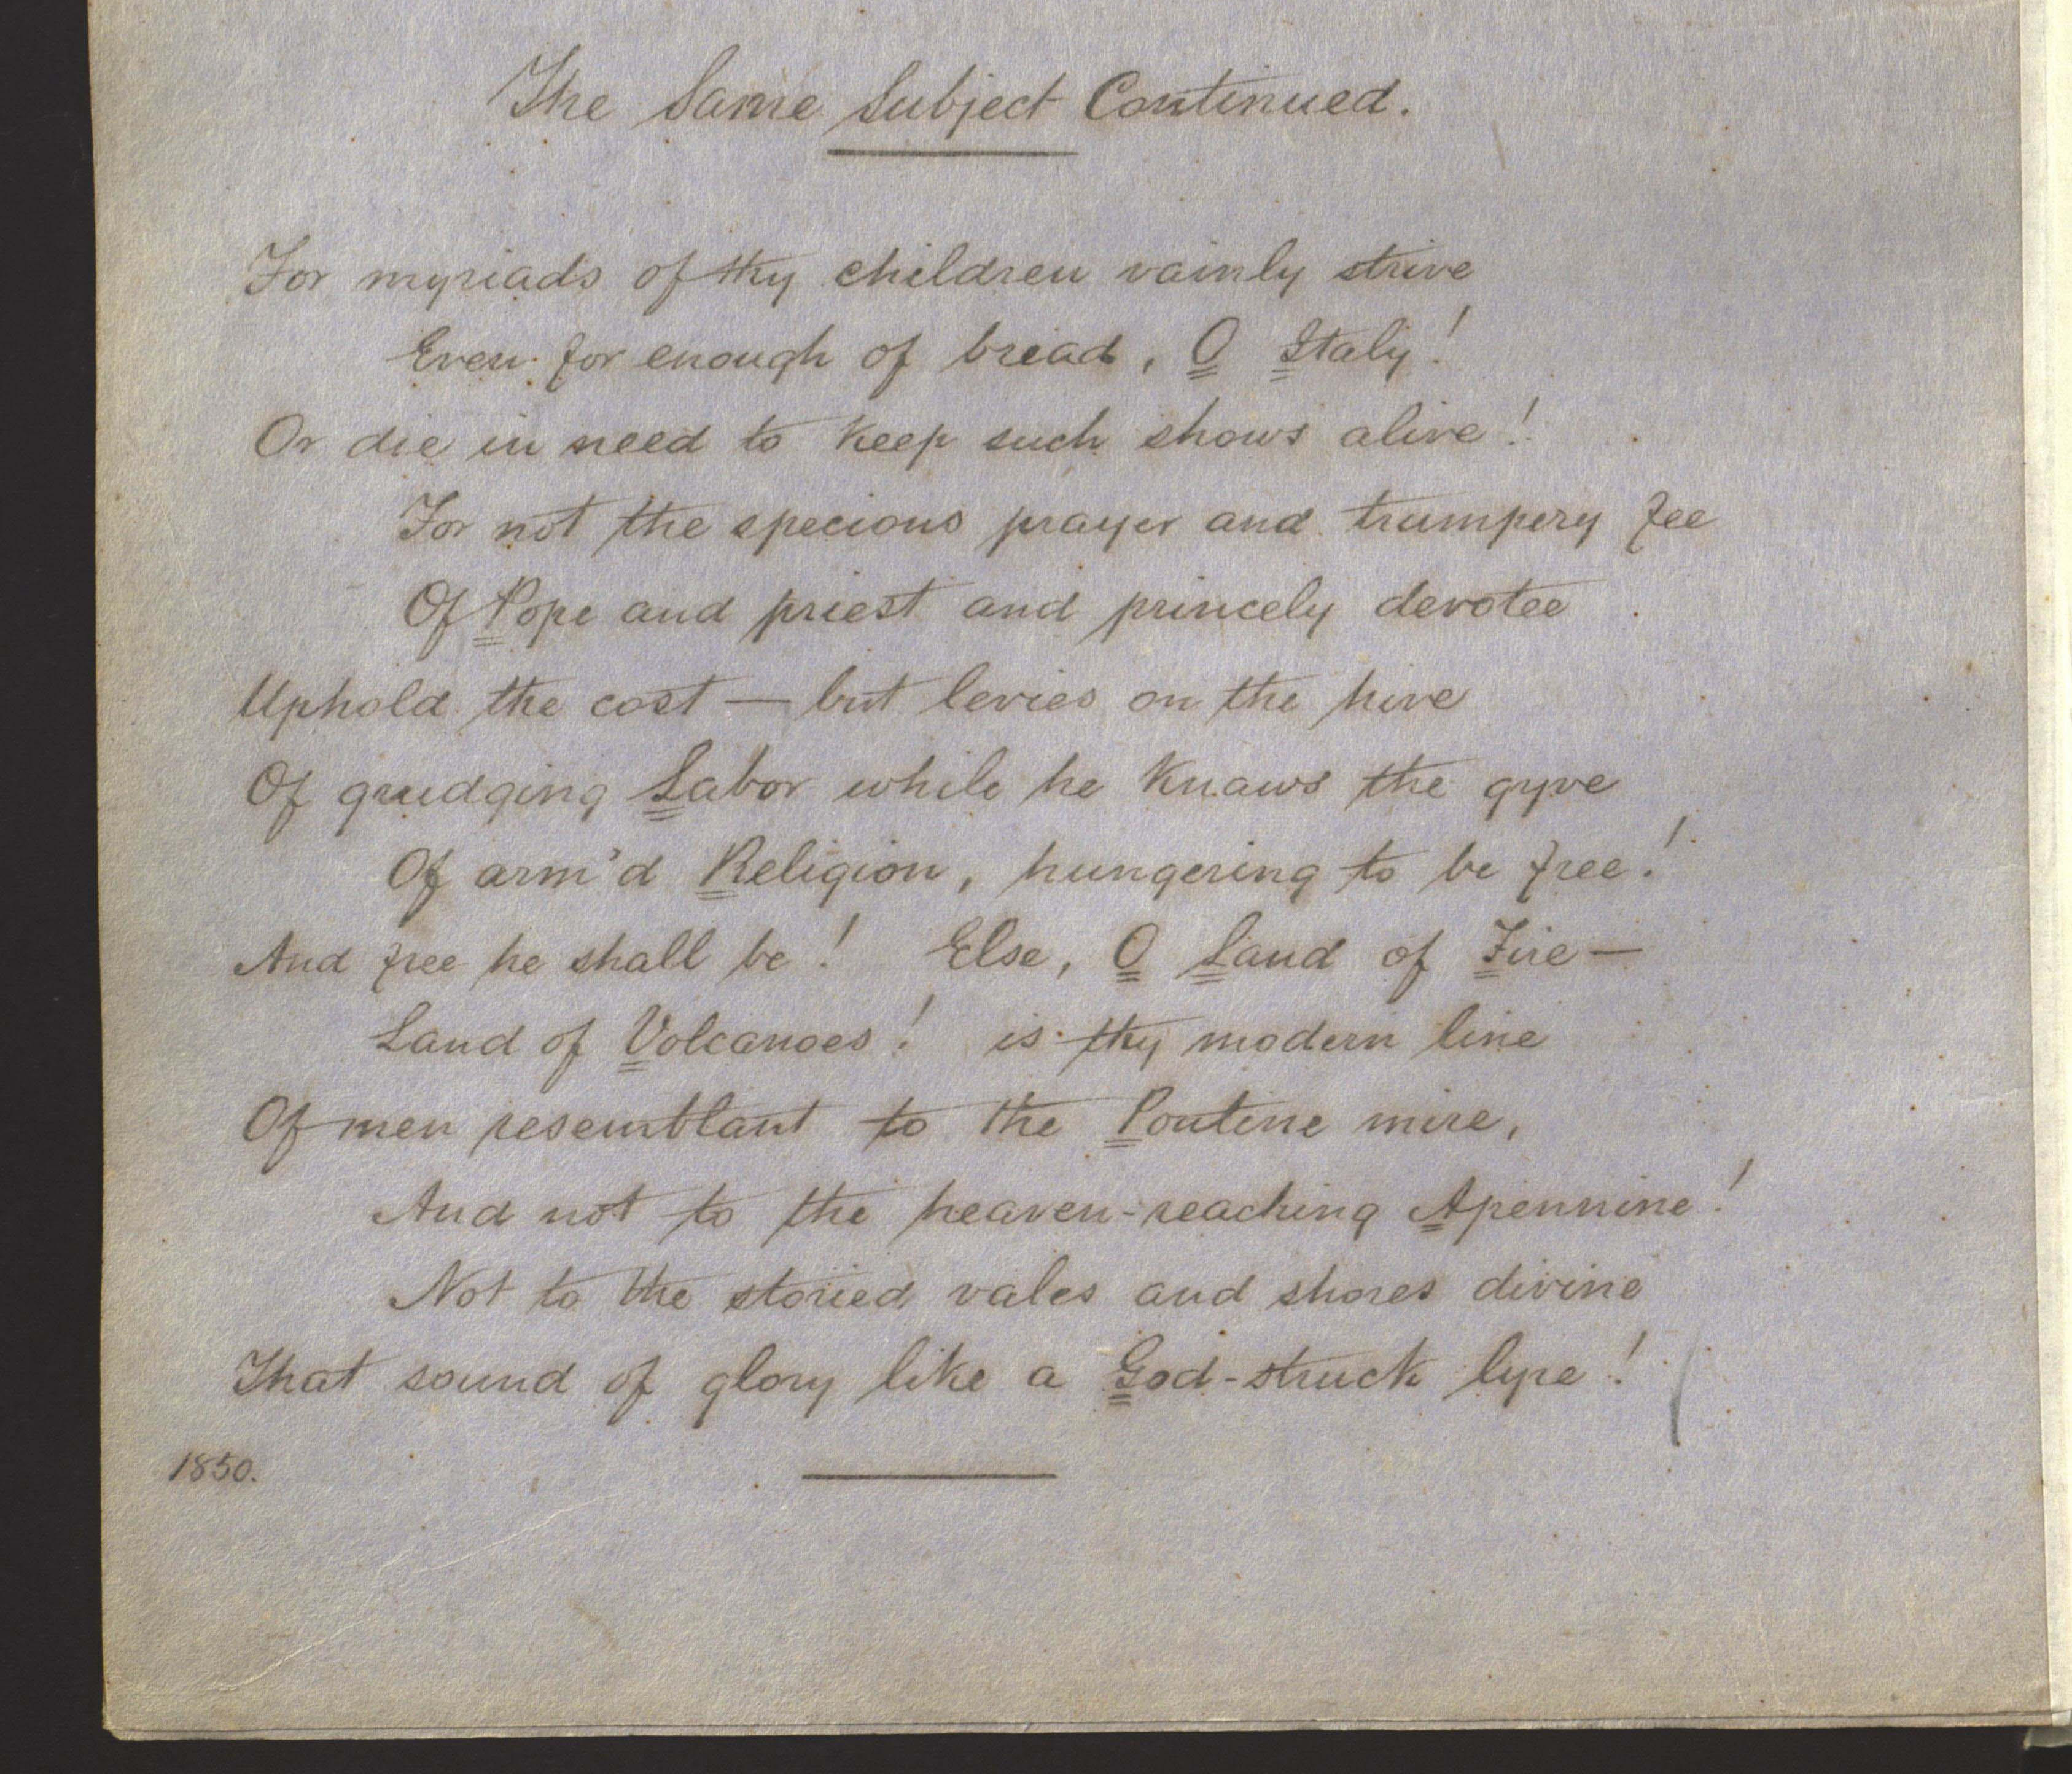 The Same Subject Continued.
For myriads of thy children vainly strive
Even for enough of bread, O Italy!
Or die in need to keep such shows alive!
For not the specious prayer and trumpery fee
Of Pope and priest and princely devotee
Uphold the cost — but levies on the hive
Of grudging Labor while he knaws the gyve
Of arm'd Religion, hungering to be free!
And free he shall be! Else, O Land of Fire —
Land of Volcanoes! is thy modern line
Of men resemblant to the Pontine mire,
And not to the heaven-reaching Apennine!
Not to the storied vales and shores divine
That sound of glory like a God-struck lyre!
1850.